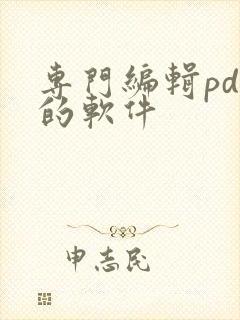 專門編輯pd
的軟件
申志民